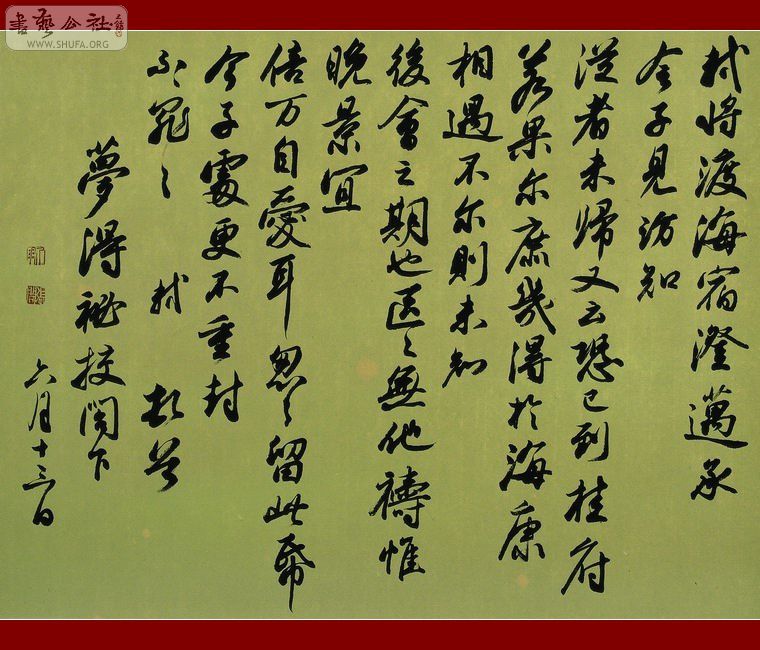 書藝公社
www.SHUFA.ORG
軾将渡海宿澄邁承
令子見訪知
從者未歸又云恐已到桂府
若果尓庶幾得於海康
相遇不尓則未知
後會之期也區々無他禱惟
晚景宜
倍万自愛耳忽々留此帋
令子處更不重封
不罪々 軾 頓首
夢得祕校閣下
六月十三日